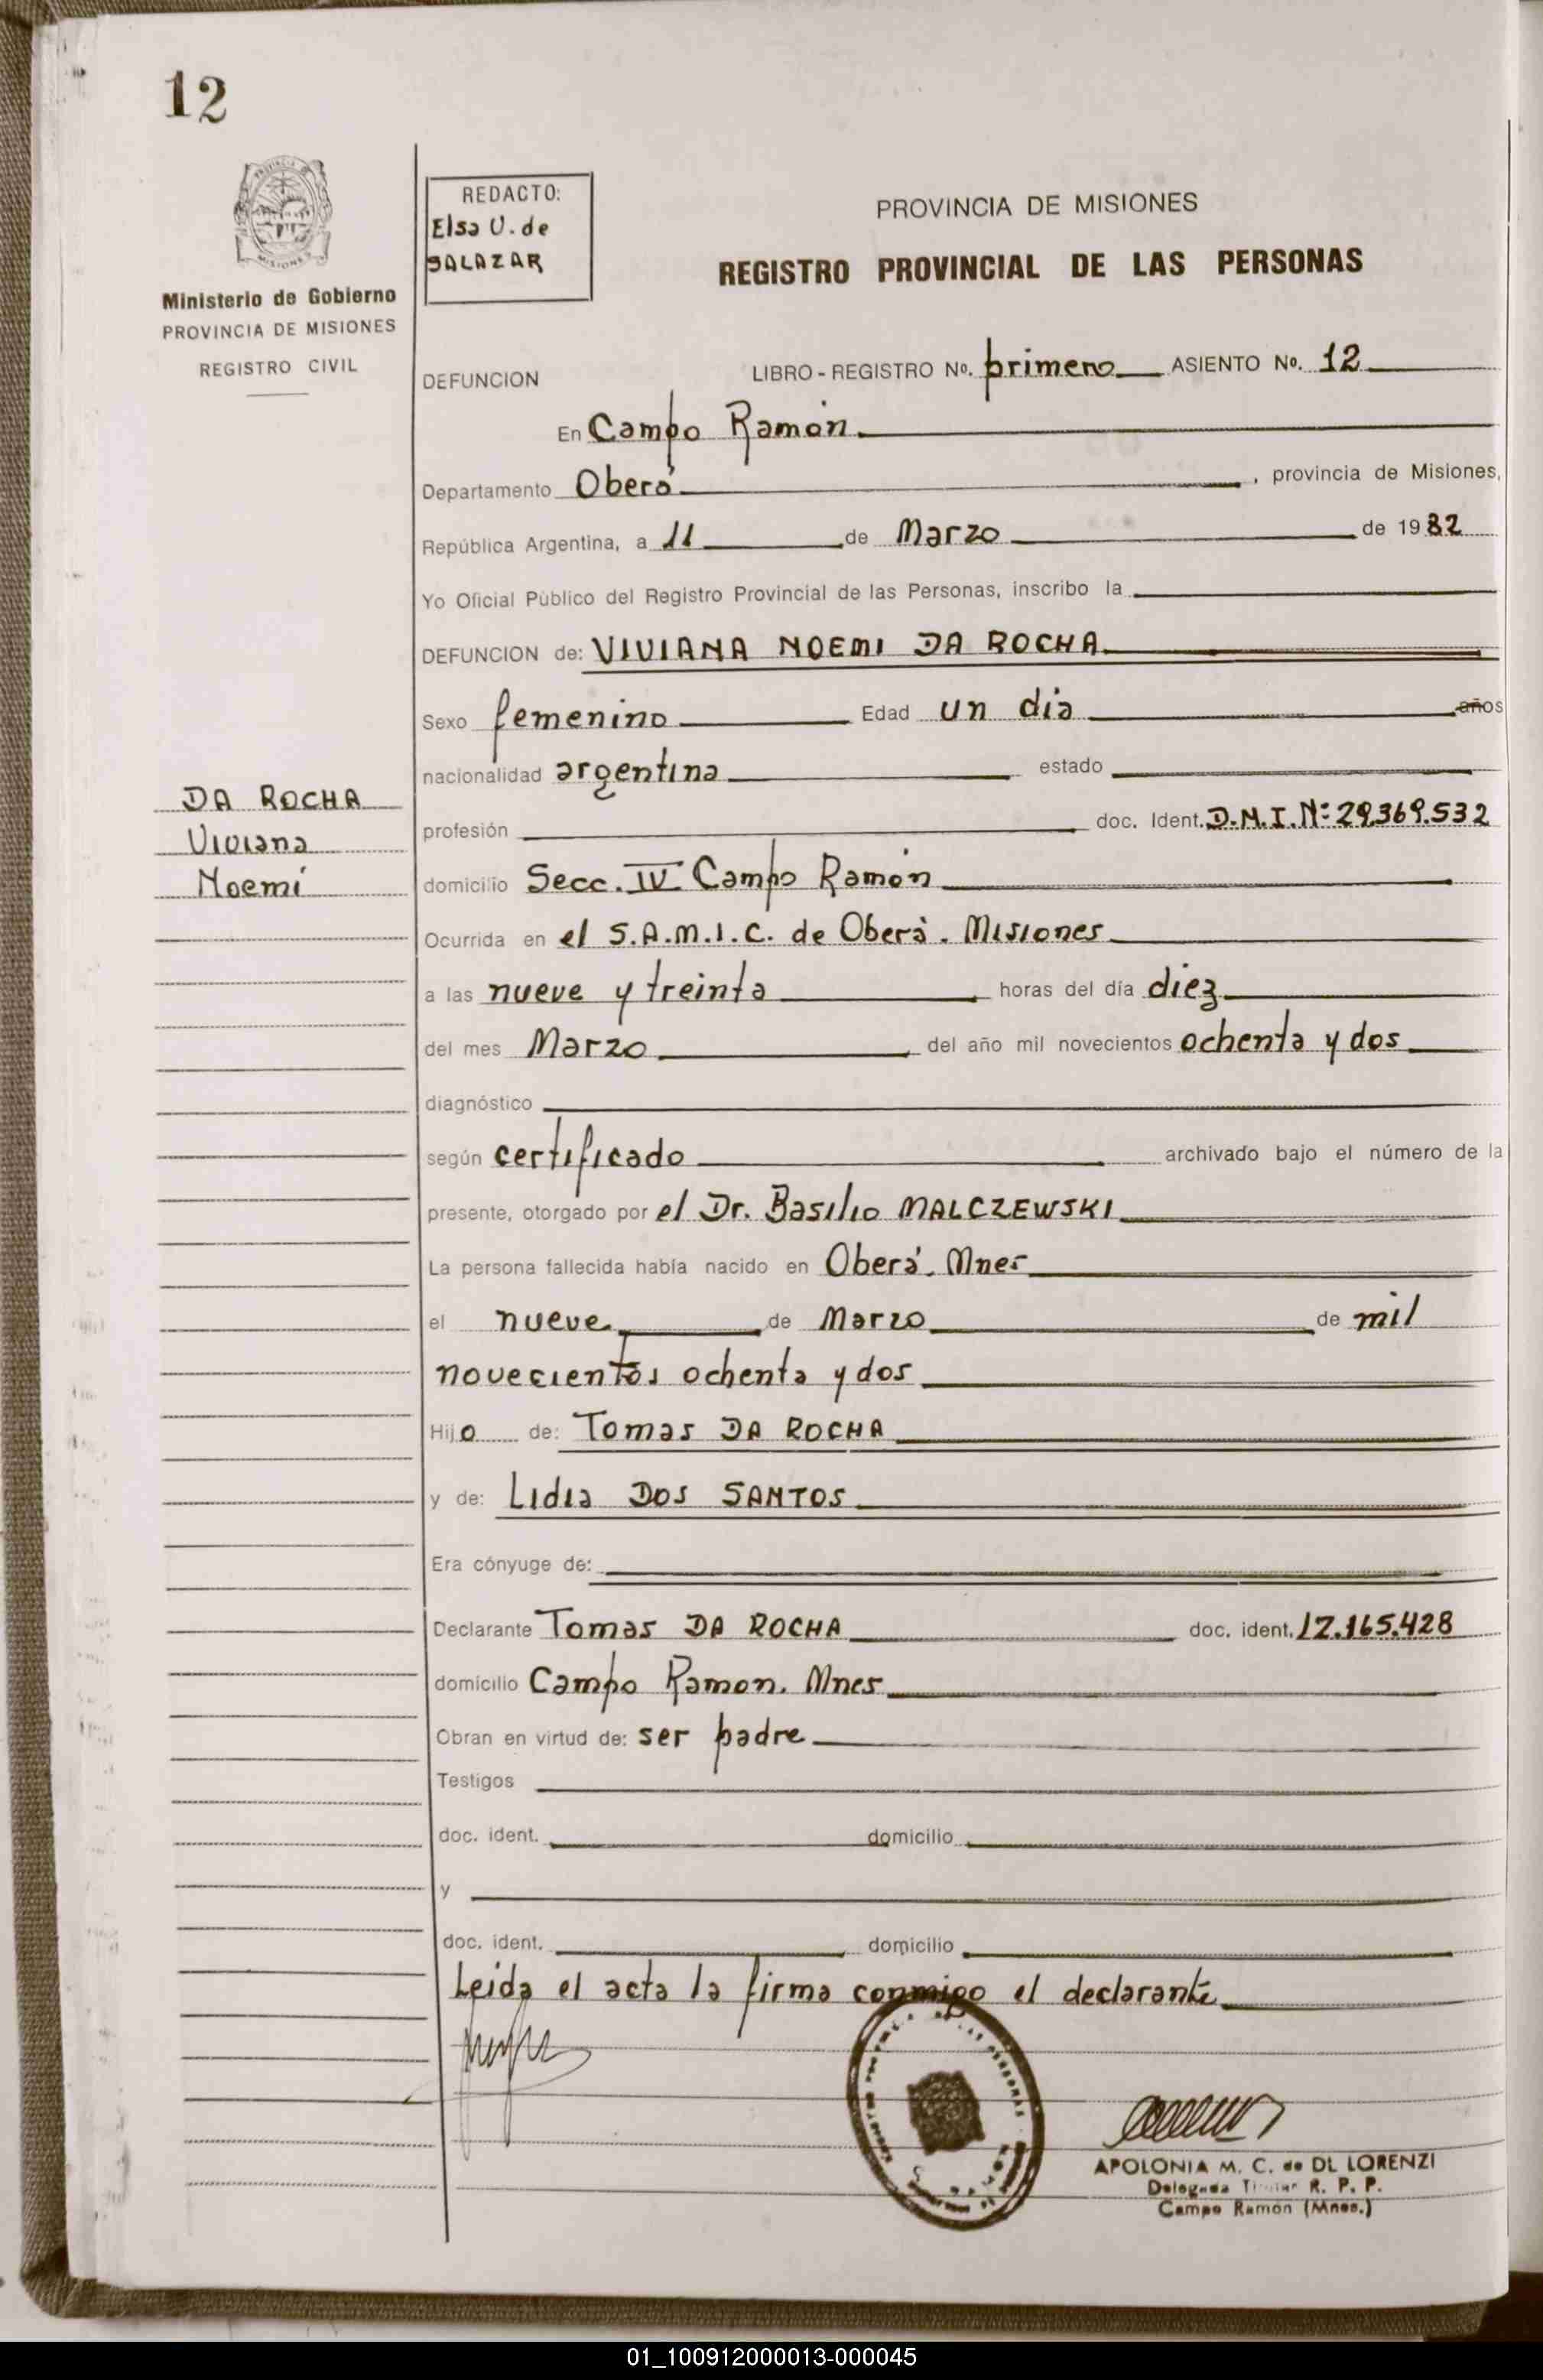 12
Ministerio de Gobierno
PROVINCIA DE MISIONES
REGISTRO CIVIL
REDACTO:
Elsa U. de
SALAZAR
PROVINCIA DE MISIONES
REGISTRO PROVINCIAL DE LAS PERSONAS
DEFUNCION LIBRO - REGISTRO No. primero ASIENTO No. 12
En Campo Ramón
Departamento Oberá, provincia de Misiones,
República Argentina, a 11 de Marzo de 1982
Yo Oficial Público del Registro Provincial de las Personas, inscribo la
DEFUNCION de: VIVIANA NOEMI DA ROCHA
Sexo femenino Edad un día años
nacionalidad argentina estado
DA ROCHA
Viviana
Noemí
profesión doc. Ident. D.N.I. Nº 29.369.532
domicilio Secc. IV Campo Ramón
Ocurrida en el S.A.M.I.C. de Oberá. Misiones
a las nueve y treinta horas del día diez
del mes Marzo del año mil novecientos ochenta y dos
diagnóstico
según certificado archivado bajo el número de la
presente, otorgado por el Dr. Basilio MALCZEWSKI
La persona fallecida había nacido en Oberá. Mnes
el nueve de Marzo de mil
novecientos ochenta y dos
Hijo de: Tomas DA ROCHA
y de: Lidia DOS SANTOS
Era cónyuge de:
Declarante Tomas DA ROCHA doc. ident. 17.165.428
domicilio Campo Ramon. Mnes
Obran en virtud de: ser padre
Testigos
doc. ident. domicilio
y
doc. ident. domicilio
Leida el acta la firma conmigo el declarante
APOLONIA M. C. de DL LORENZI
Delegada Titular R. P. P.
Campo Ramón (Mnes.)
01_100912000013-000045